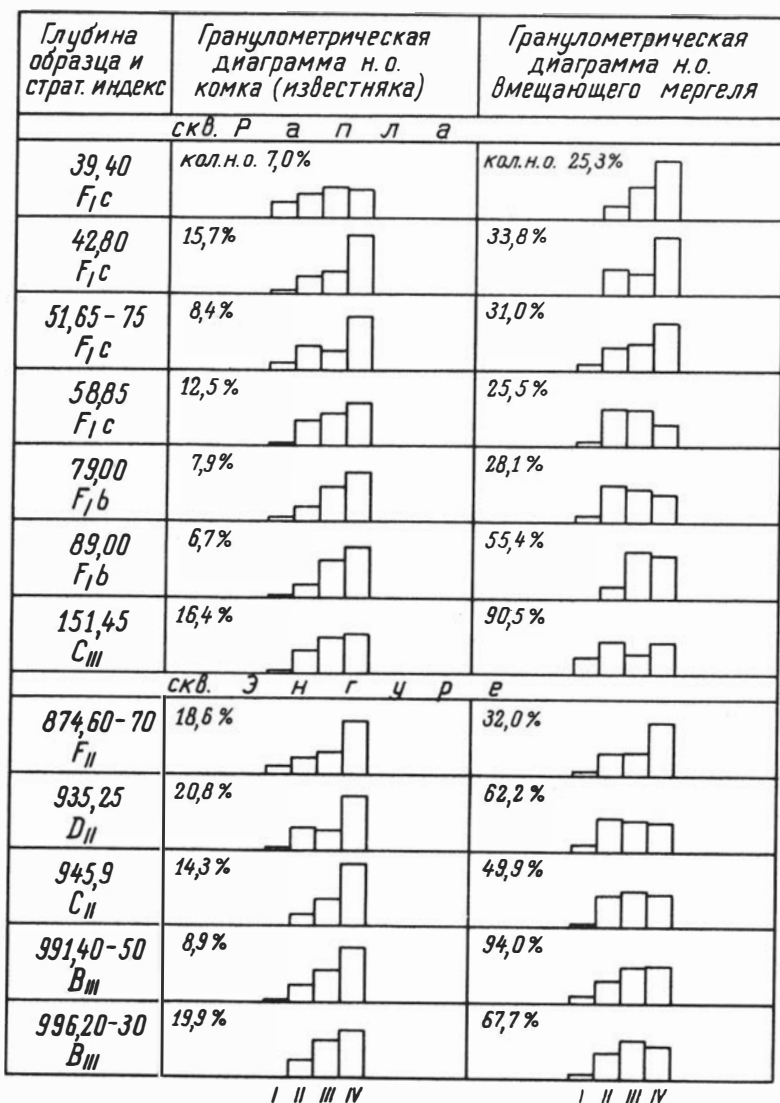 Глубина
образца и
страт. индекс
Гранулометрическая
диаграмма н.о.
комка (известняка)
Гранулометрическая
диаграмма н.о.
вмещающего мергеля
скв. Рапла
39,40
F I c
кол.н.о. 7,0%
кол.н.о. 25,3%
42,80
F I c
15,7%
33,8%
51,65-75
F I c
8,4%
31,0%
58,85
F I c
12,5%
25,5%
79,00
F I b
7,9%
28,1%
89,00
F I b
6,7%
55,4%
151,45
C III
16,4%
90,5%
скв. Энгуре
874,60-70
F II
18,6%
32,0%
935,25
D II
20,8%
62,2%
945,9
C II
14,3%
49,9%
991,40-50
B III
8,9%
94,0%
996,20-30
B III
19,9%
67,7%
I II III IV
I II III IV